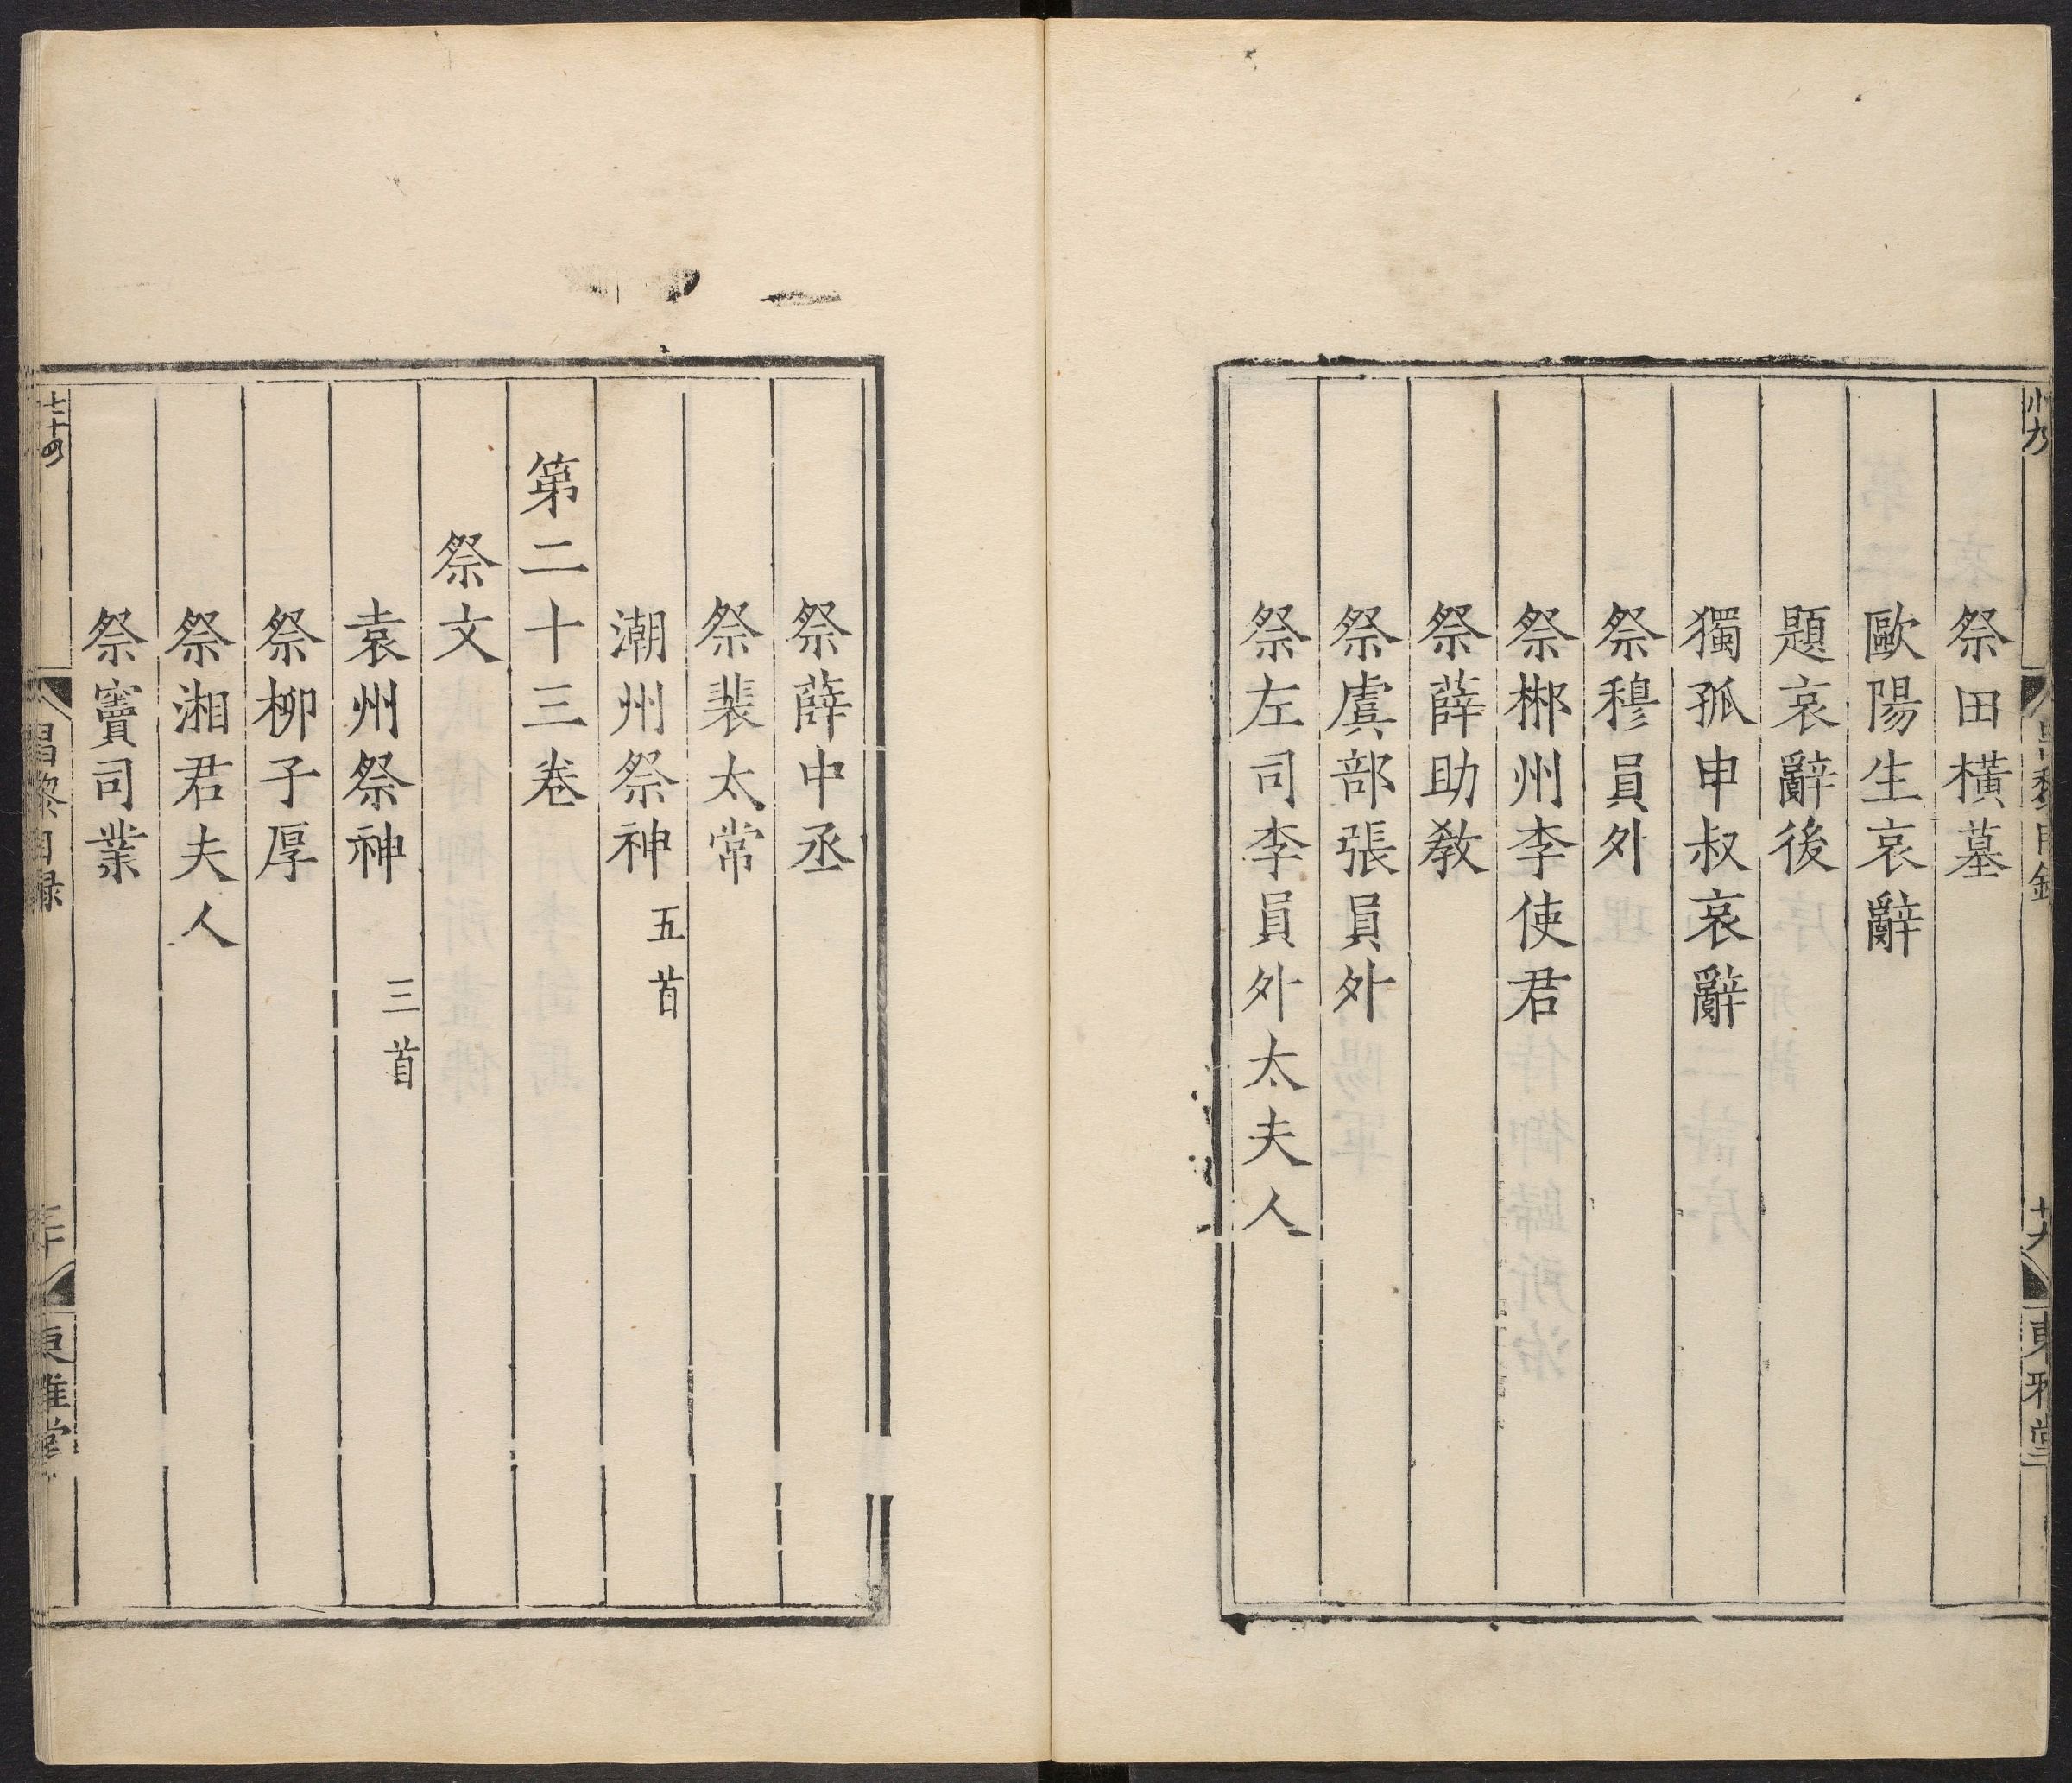 祭田橫墓
歐陽生哀辭
題哀辭後
獨孤申叔哀辭
祭穆員外
祭郴州李使君
祭薛助教
祭虞部張員外
祭左司李員外太夫人
祭薛中丞
祭裴太常
潮州祭神 五首
第二十三卷
祭文
袁州祭神 三首
祭柳子厚
祭湘君夫人
祭竇司業
昌黎目録
東雅堂